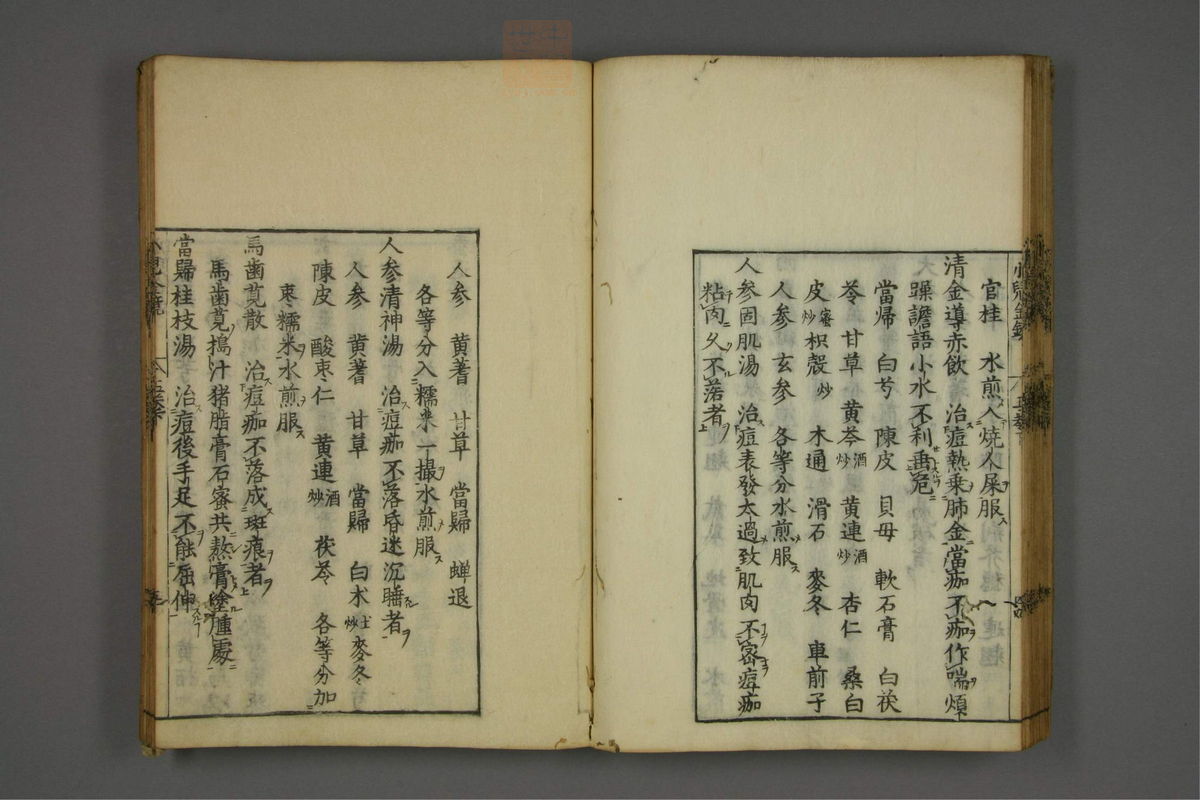 官桂　水煎入燒人屎服
清金導赤飲　治痘熱乗肺金當痂不痂作喘煩
躁譫語小水不利垂危
當帰　白芍　陳皮　貝母　軟石膏　白茯
苓　甘草　黄芩酒炒　黄連酒炒　杏仁　桑白
皮蜜炒　枳殻炒　木通　滑石　麥冬　車前子
人参　玄参　各等分水煎服
人参固肌湯　治痘表發太過致肌肉不密痘痂
粘肉久不落者
人参　黄蓍　甘草　當歸　蝉退
各等分入糯米一撮水煎服
人参清神湯　治痘痂不落昏迷沉睡者
人参　黄蓍　甘草　當歸　白术土炒　麥冬
陳皮　酸枣仁　黄連酒炒　茯苓　各等分加
枣糯米水煎服
馬歯莧散　治痘痂不落成斑痕者
馬歯莧搗汁猪脂膏石蜜共熬膏塗腫處
當歸桂枝湯　治痘後手足不能屈伸